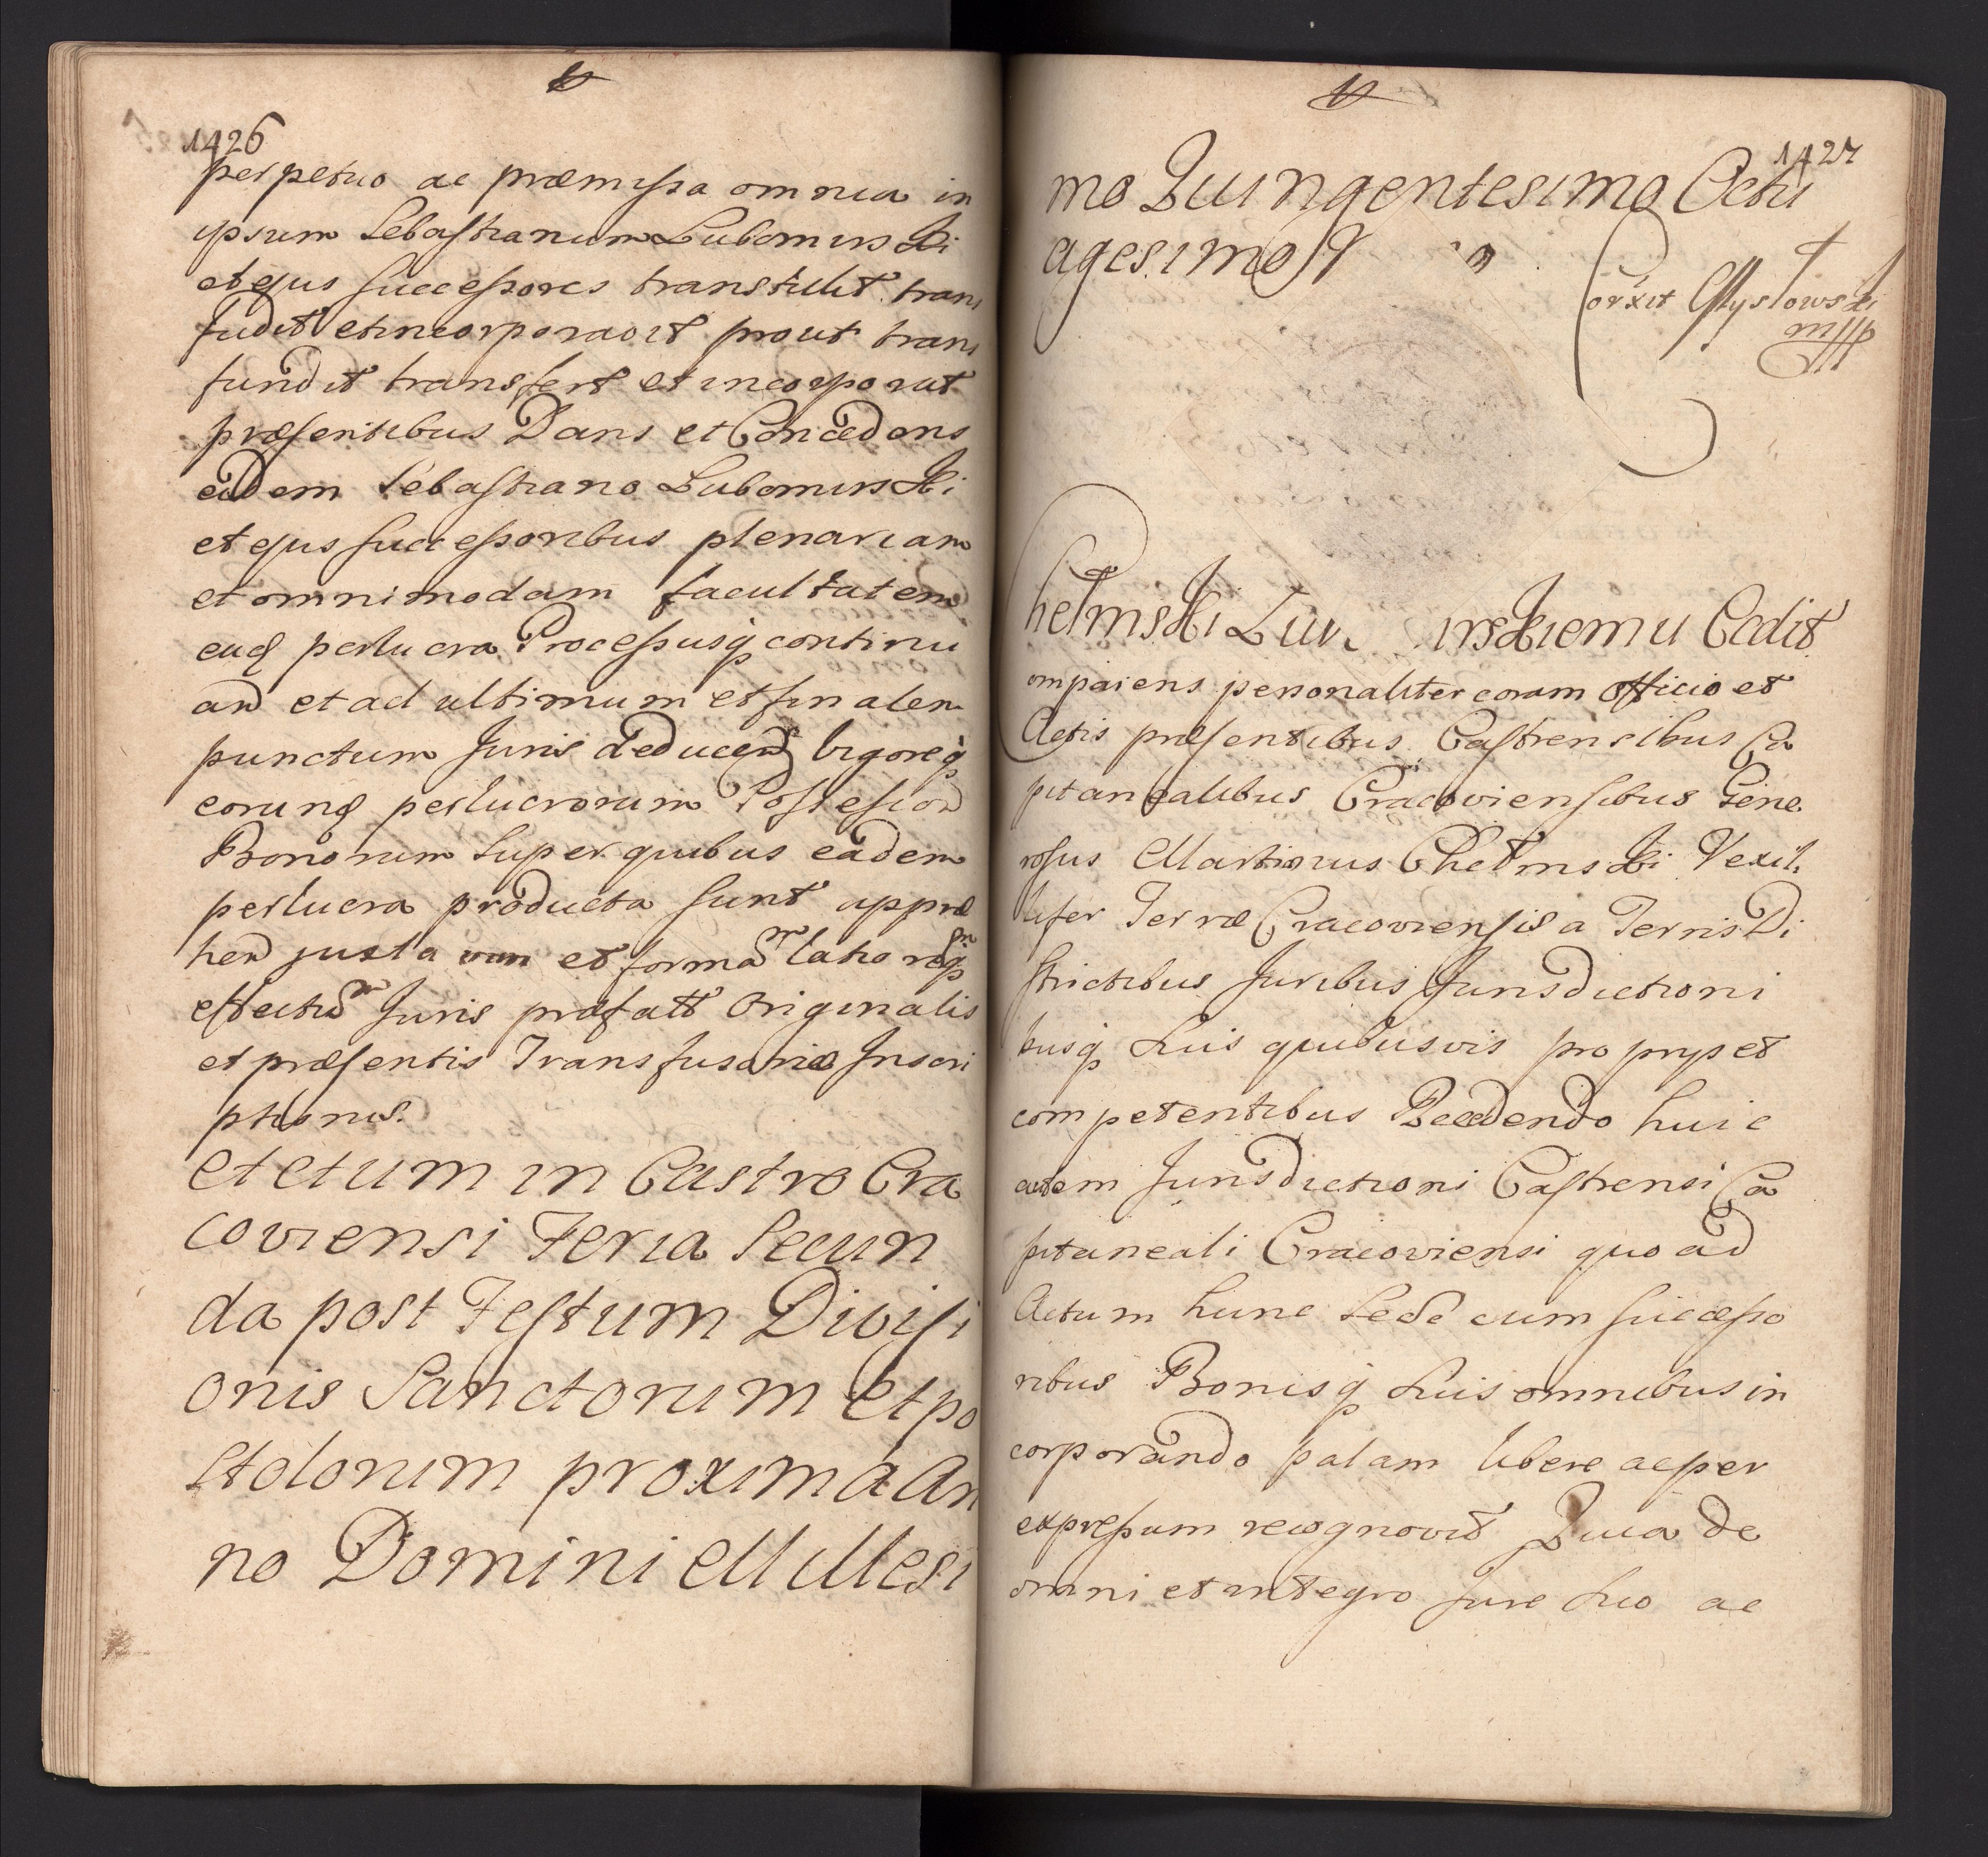 1426
perpetuo ac præmissa omnia in
ipsum Sebastianum Lubomirski
et ejus successores transtulit trans
fudit et incorporavit prout trans
fundit transfert et incorporat
præsentibus Dans et Concedens
eidem Sebastiano Lubomirski
et ejus successoribus plenariam
et omnimodam facultatem
eadē perlucra Processusq̃ continu
and et ad ultimum et finalem
punctum Juris deducend vigoreq̃
eorund perlucrorum Possession
Bonorum super quibus eadem
perlucra producta sunt appræ
hend juxta vim et formam latiorēq̃
effectum Juris præfatt Originalis
et præsentis Transfusoriæ Inscri
ptionis.
Actum in Castro Cra
coviensi Feria Secun
da post Festum Divisi
onis Sanctorum Apo
stolorum proxima An
no Domini Millesi
1427
mo Quingentesimo Octu
agesimo
Corxit Mysłowski
mpp
Chełmski Cedit
omparens personaliter coram Officio et
Actis præsentibus Castrensibus Ca
pitanealibus Cracoviensibus Gene
rosus Martinus Chełmski Vexil
lifer Terræ Cracoviensis a Terris Di
strictibus Juribus Jurisdictioni
busq̃ suis quibusvis proprys et
competentibus Recedendo huic
autem Jurisdictioni Castrensi Ca
pitaneali Cracoviensi quo ad
Actum hunc sese cum successo
ribus Bonisq̃ suis omnibus in
corporando palam libere ac per
expressum recognovit Quia de
omni et integro Jure suo ac